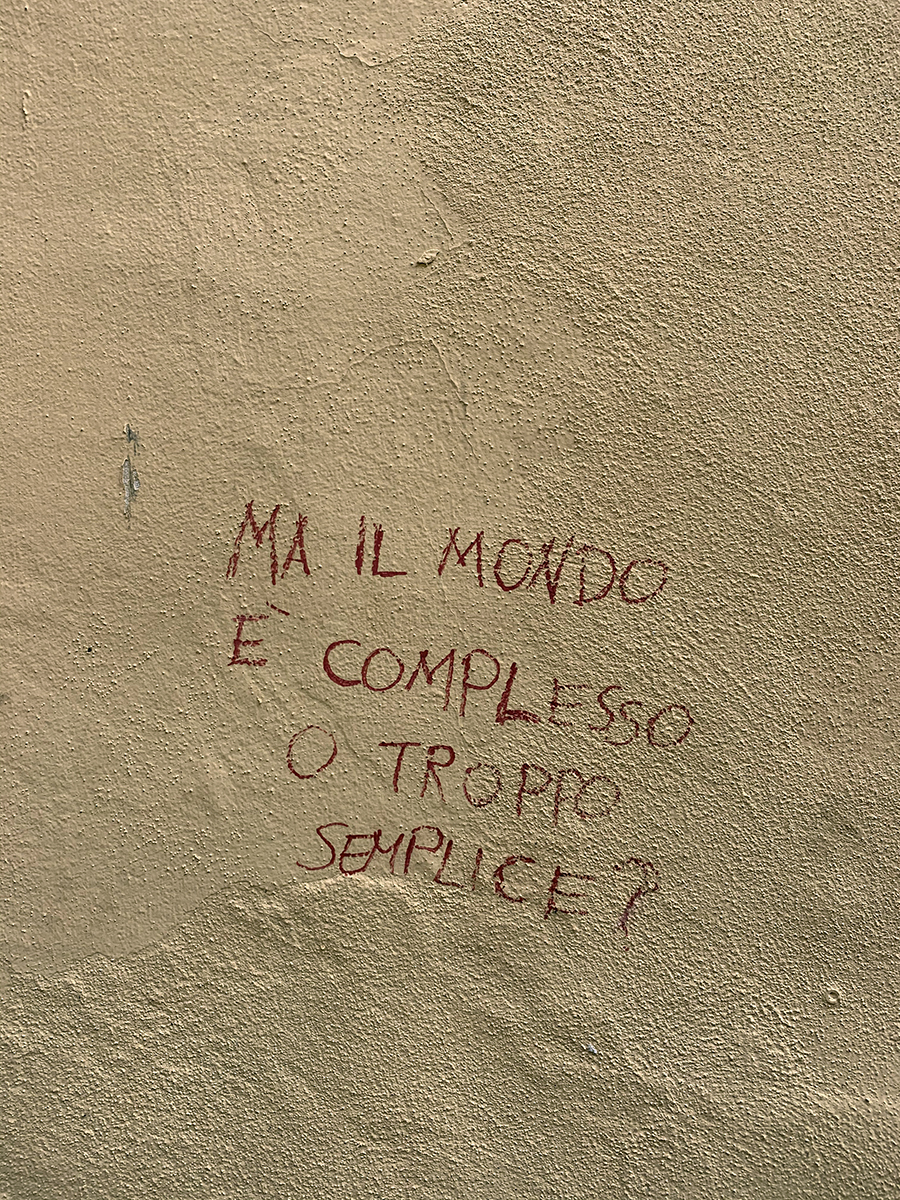 MA IL MONDO
È COMPLESSO
O TROPPO
SEMPLICE?